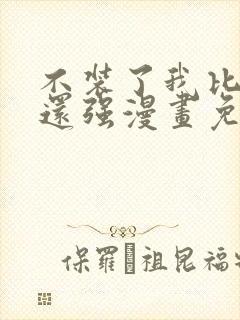 不装了我比
還强漫畫免
保羅·祖昆福